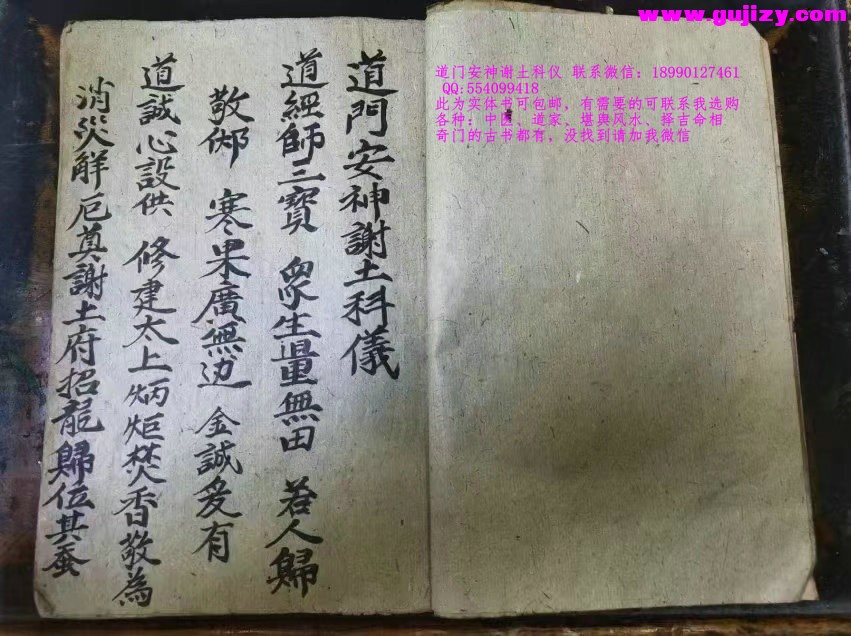 www.gujizy.com
道门安神谢土科仪 联系微信：18990127461
QQ:554099418
此为实体书可包邮，有需要的可联系我选购
各种：中医、道家、堪舆风水、择吉命相
奇门的古书都有，没找到请加我微信
道門安神謝土科儀
道經師三寶 眾生量無田 若人歸
敬邺 寒果廣無边 金誠爰有
道誠心設供 修建太上炳炬焚香敬為
消災解厄奠謝土府招龍歸位其蚕